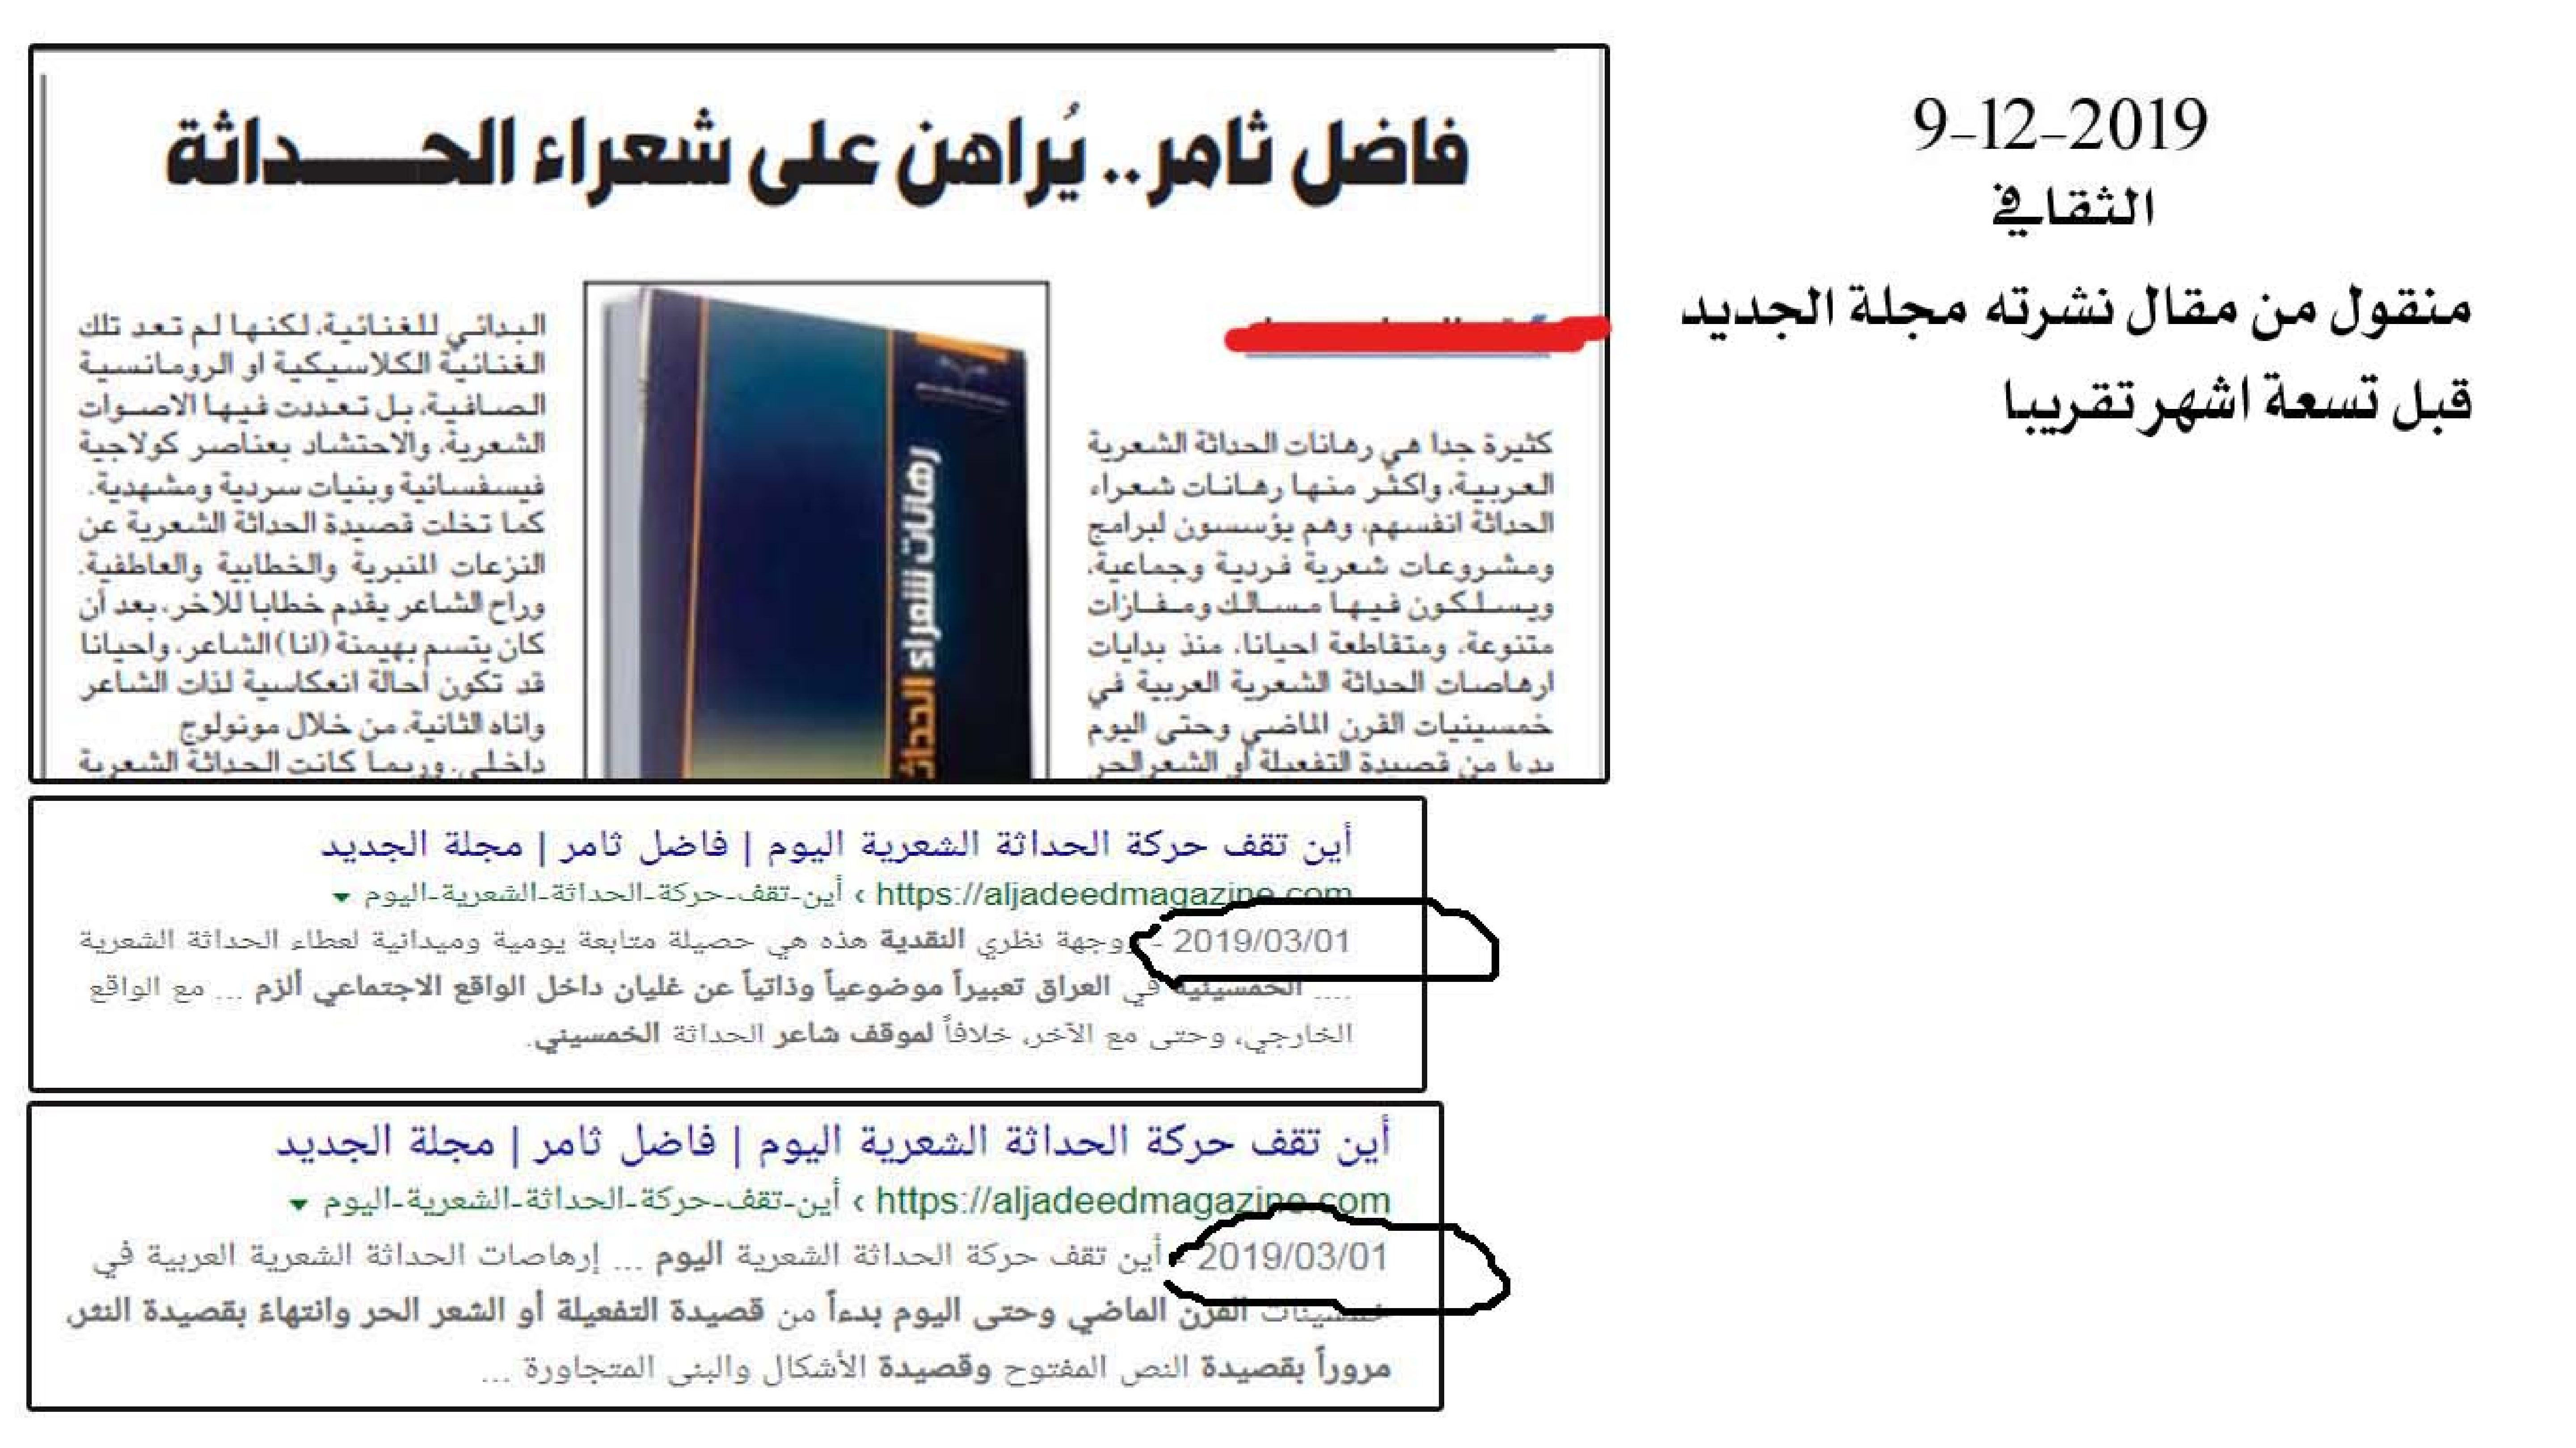 فاضل ثامر.. يُراهن على شعراء الحـــداثة
كثيرة جدا هي رهانات الحداثة الشعرية
العربية، واكثر منها رهانات شعراء
الحداثة انفسهم، وهم يؤسسون لبرامج
ومشروعات شعرية فردية وجماعية،
ويسلكون فيها مسالك ومفازات
متنوعة، ومتقاطعة احيانا، منذ بدايات
ارهاصات الحداثة الشعرية العربية في
خمسينيات القرن الماضي وحتى اليوم
بدءا من قصيدة التفعيلة أو الشعر الحر
رهانات شعراء الحداثة
البدائي للغنائية، لكنها لم تعد تلك
الغنائية الكلاسيكية او الرومانسية
الصافية، بل تعددت فيها الاصوات
الشعرية، والاحتشاد بعناصر كولاجية
فيسفسائية وبنيات سردية ومشهدية.
كما تخلت قصيدة الحداثة الشعرية عن
النزعات المنبرية والخطابية والعاطفية.
وراح الشاعر يقدم خطابا للاخر، بعد أن
كان يتسم بهيمنة (انا) الشاعر، واحيانا
قد تكون احالة انعكاسية لذات الشاعر
واناه الثانية، من خلال مونولوج
داخلي. وربما كانت الحداثة الشعرية
9-12-2019
الثقافي
منقول من مقال نشرته مجلة الجديد
قبل تسعة اشهر تقريبا
أين تقف حركة الحداثة الشعرية اليوم | فاضل ثامر | مجلة الجديد
https://aljadeedmagazine.com › أين-تقف-حركة-الحداثة-الشعرية-اليوم
2019/03/01 - وجهة نظري النقدية هذه هي حصيلة متابعة يومية وميدانية لعطاء الحداثة الشعرية
.... الخمسينية في العراق تعبيراً موضوعياً وذاتياً عن غليان داخل الواقع الاجتماعي ألزم ... مع الواقع
الخارجي، وحتى مع الآخر، خلافاً لموقف شاعر الحداثة الخمسيني.
أين تقف حركة الحداثة الشعرية اليوم | فاضل ثامر | مجلة الجديد
https://aljadeedmagazine.com › أين-تقف-حركة-الحداثة-الشعرية-اليوم
2019/03/01 - أين تقف حركة الحداثة الشعرية اليوم ... إرهاصات الحداثة الشعرية العربية في
خمسينات القرن الماضي وحتى اليوم بدءاً من قصيدة التفعيلة أو الشعر الحر وانتهاءً بقصيدة النثر،
مروراً بقصيدة النص المفتوح وقصيدة الأشكال والبنى المتجاورة ...